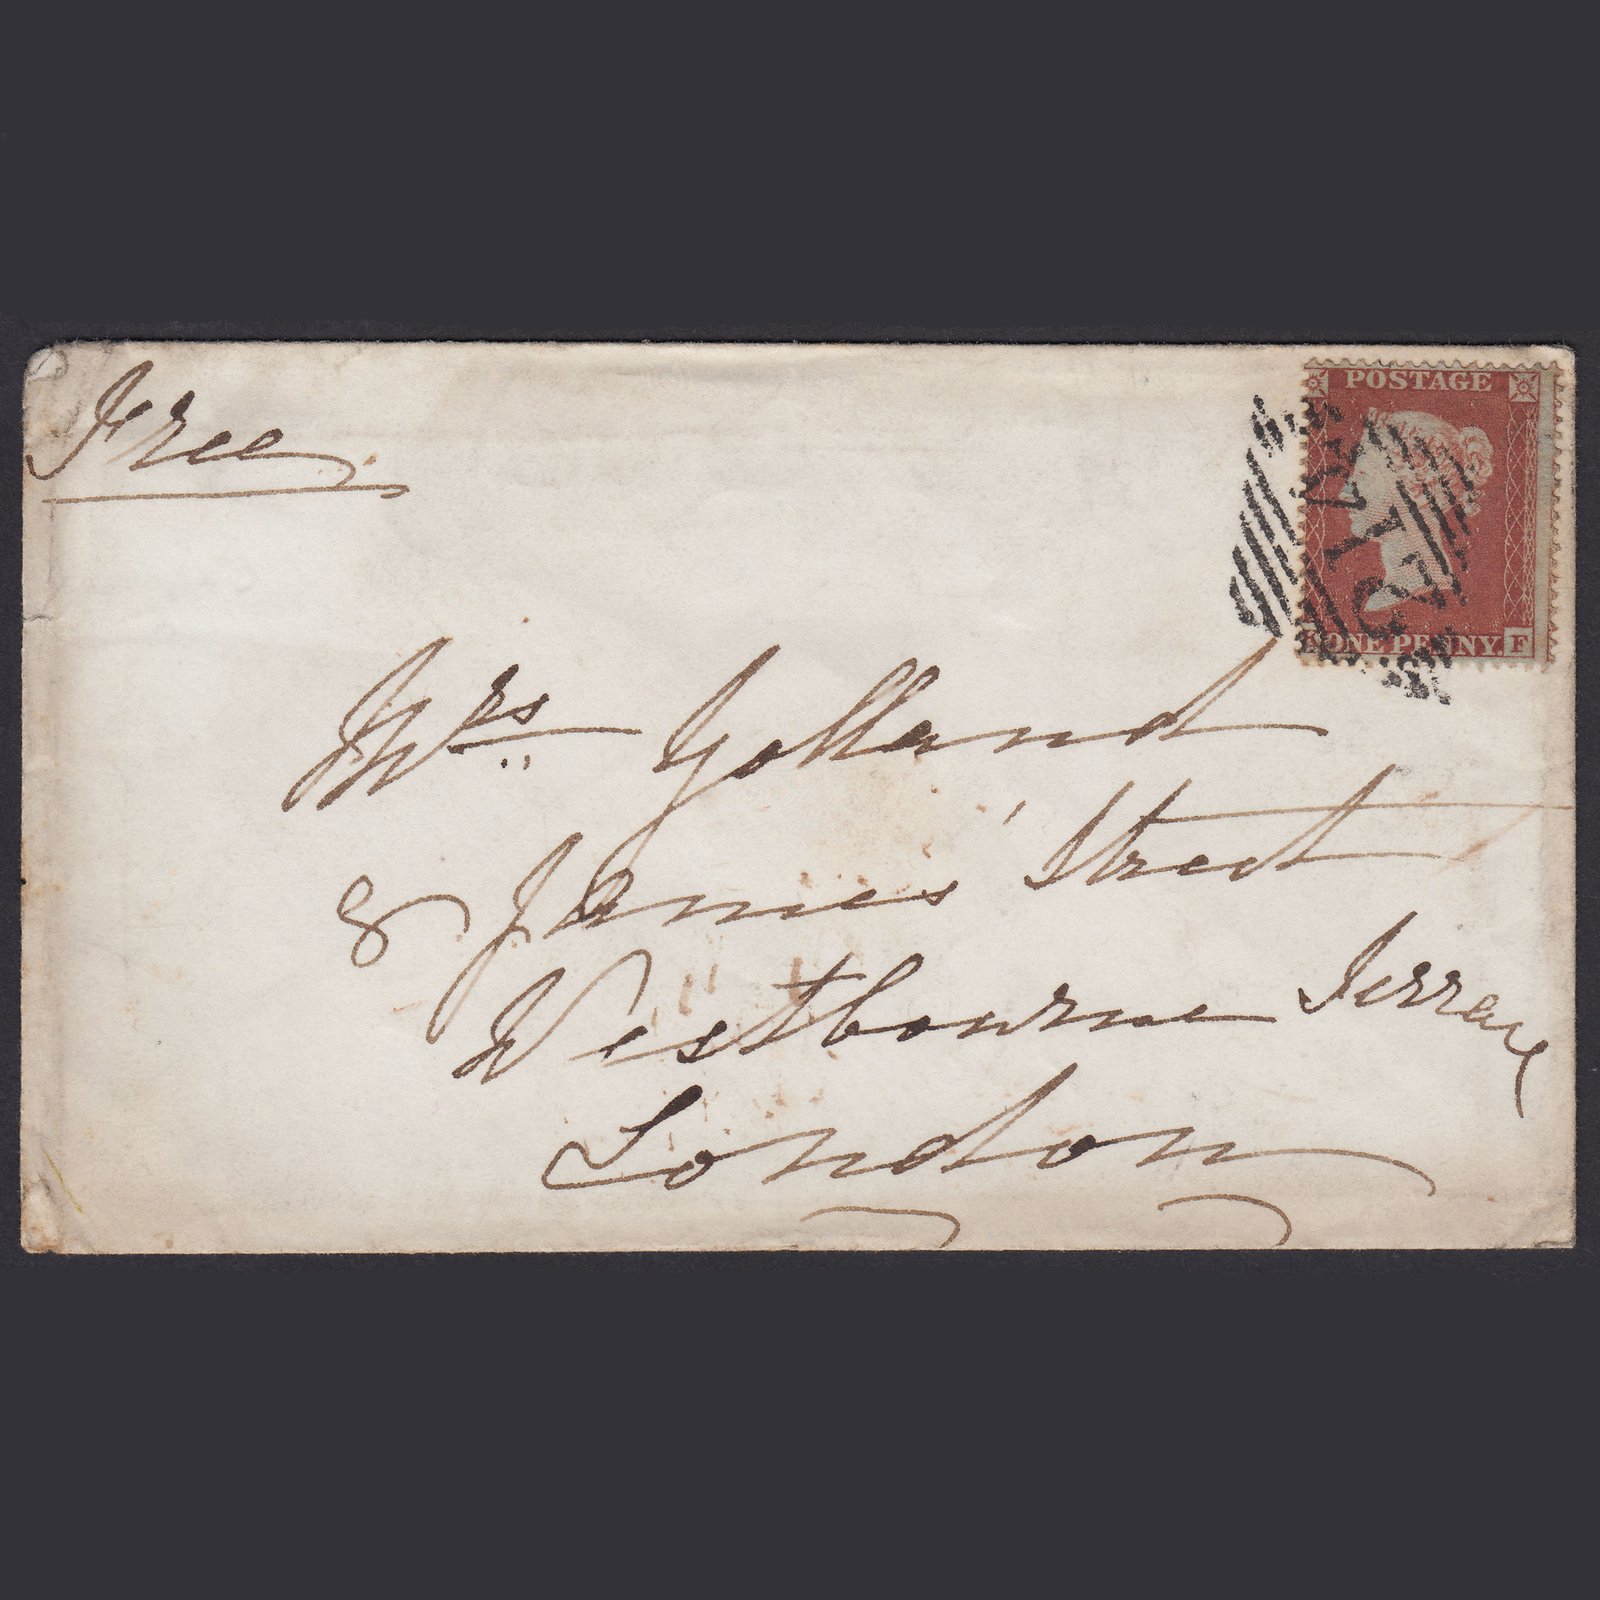 Free
POSTAGE
ONE PENNY.
F
Mrs Yolland
8 James' Street
Westbourne Terrace
London